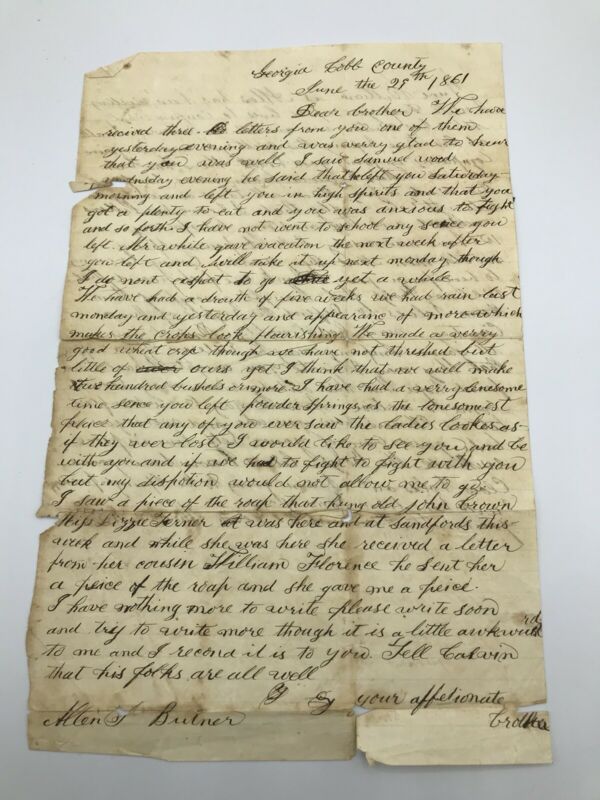 Georgia Cobb County
June the 29th 1861
Dear brother We have
recived three letters from you one of them
yesterday evening and was verry glad to hear
that you was well I saw Samuel wood
wednsday evening he said that he left you Saturday
morning and left you in high spirits and that you
got a plenty to eat and you was anxious to fight
and so forth I have not went to school any sence you
left Mr while gave vacation the next week after
you left and will take it up next monday though
I do nont expect to go yet a while
We have had a drouth of five weeks we had rain last
monday and yesterday and appearance of more which
makes the crops look flourishing We made a verry
good wheat crop though we have not threshed but
little of ours yet I think that we will make
five hundred bushels or more I have had a verry lonesome
time sence you left powder Springs is the lonesomest
place that any of you ever saw the ladies looks as
if they wer lost I would like to see you and be
with you and if we had to fight to fight with you
but my dispotion would not allow me to go
I saw a piece of the roap that hung old John brown
Miss Lizzie Ferner at was here and at Sandfords this
week and while she was here she received a letter
from her cousin William Florence he sent her
a peice of the roap and she gave me a peice
I have nothing more to write please write soon
and try to write more though it is a little awkward
to me and I recond it is to you. Tell Calvin
that his folks are all well
your affetionate
brother
Allen Butner